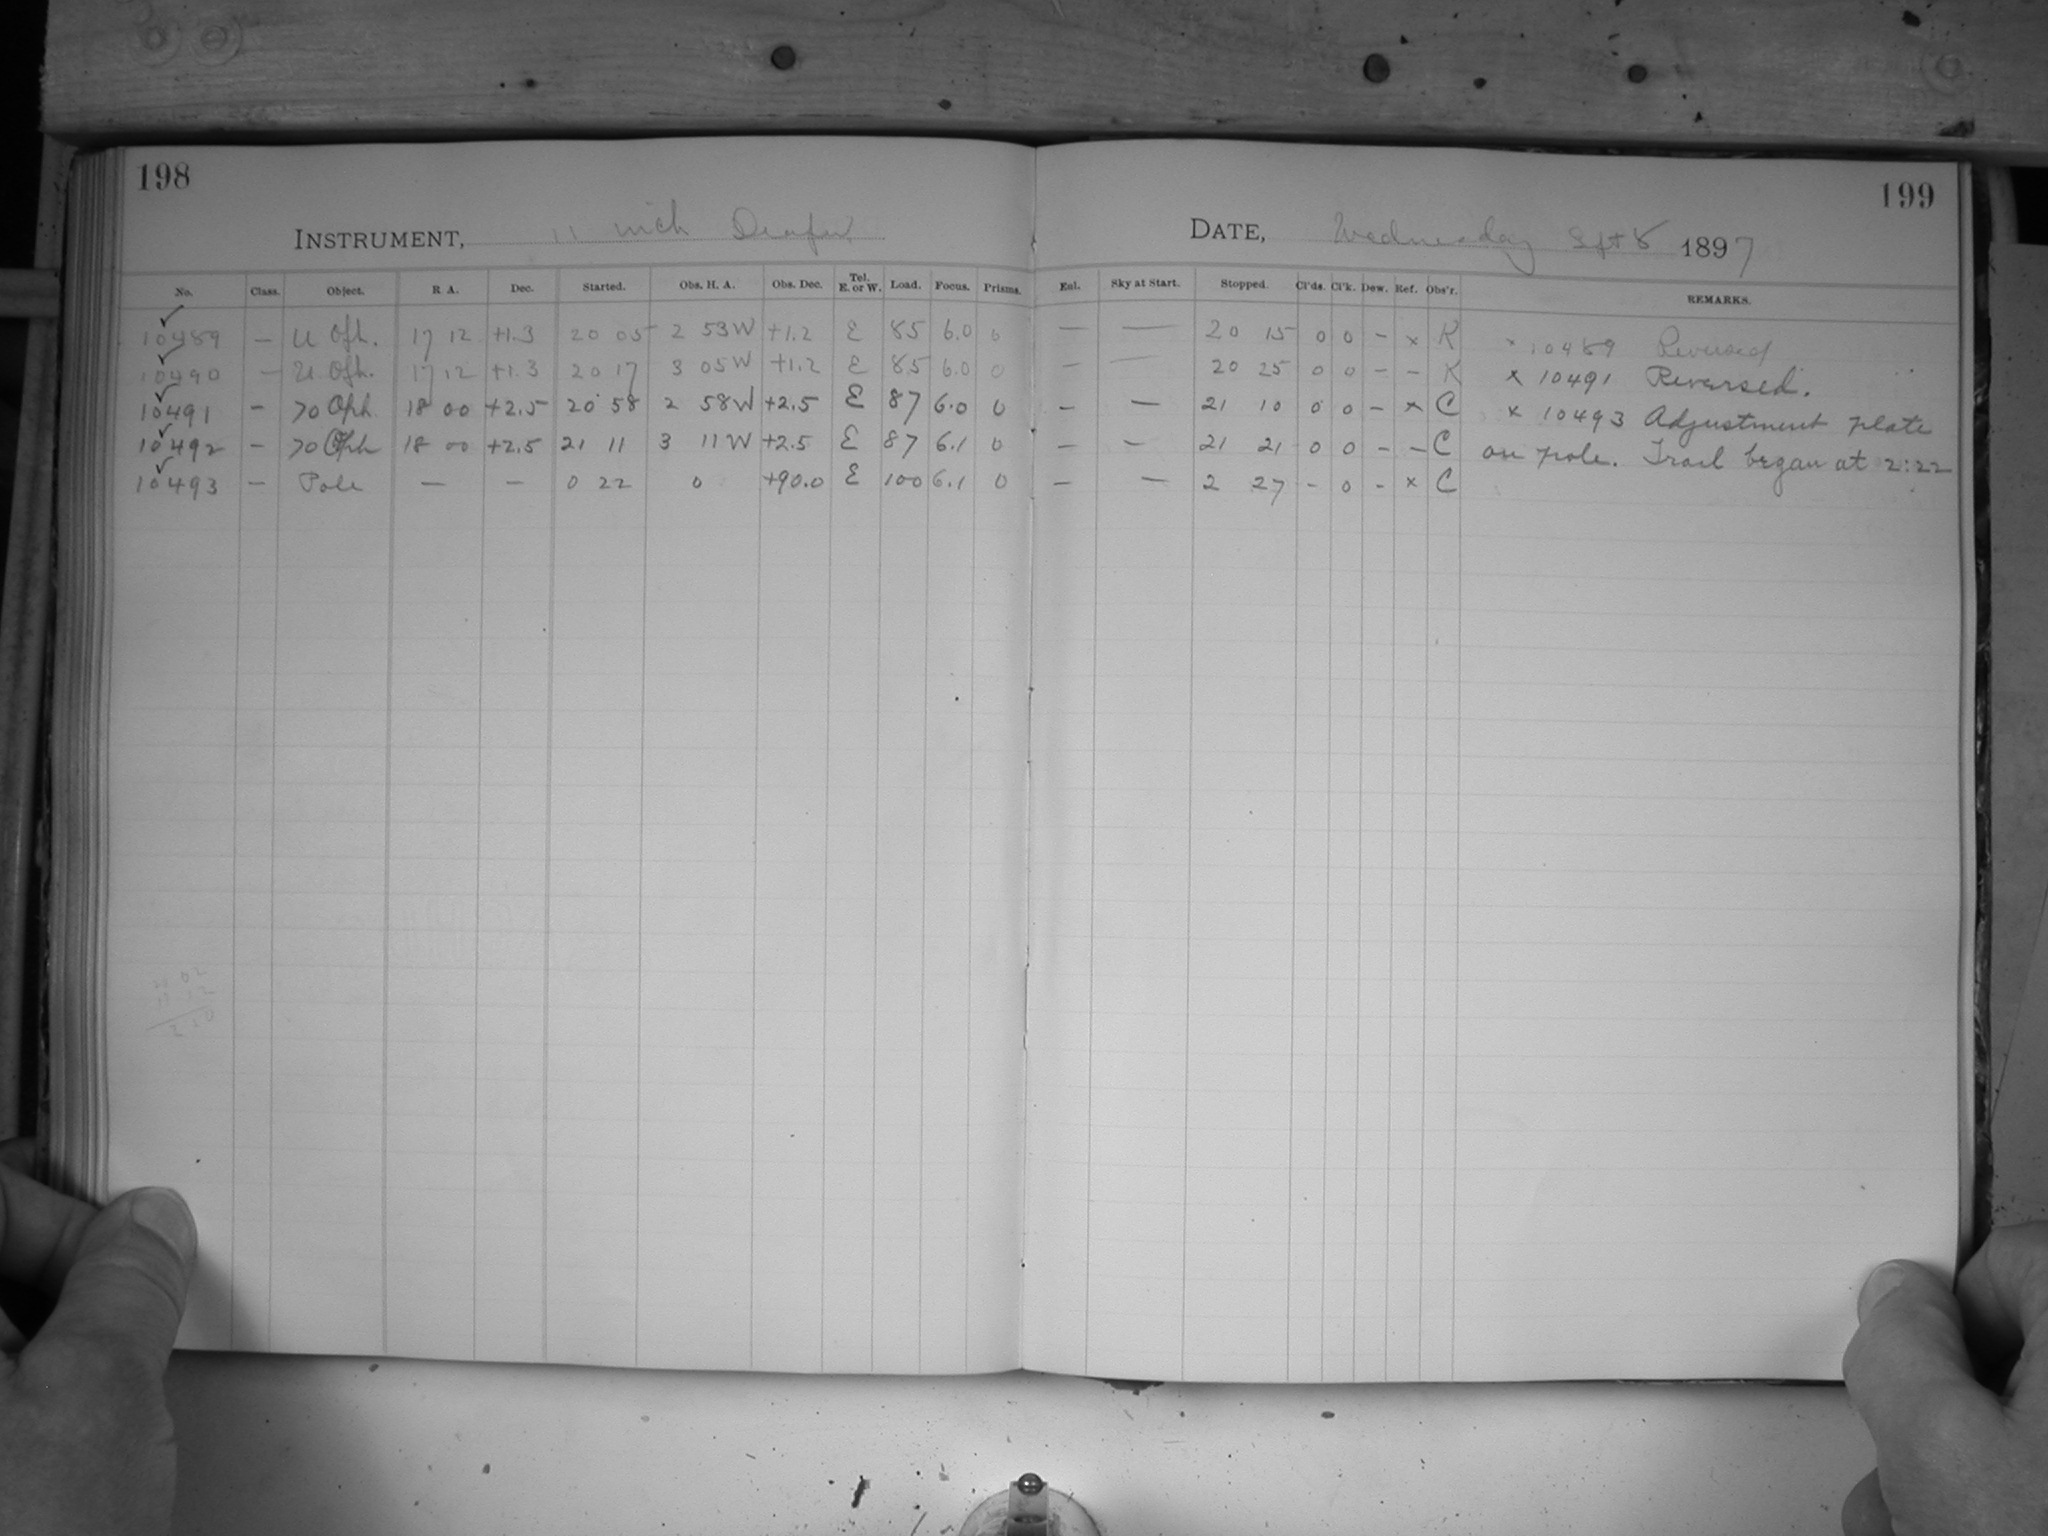 198
199
INSTRUMENT, 11 inch Draper
DATE, Wednesday Sept 8 1897
No. Class. Object. R. A. Dec. Started. Obs. H. A. Obs. Dec. Tel. E. or W. Load. Focus. Prisms. Enl. Sky at Start. Stopped. Cl'ds. Cl'k. Dew. Ref. Obs'r. REMARKS.
✓ 10489 — U Oph. 17 12 +1.3 20 05 2 53W +1.2 E 85 6.0 0 — — 20 15 0 0 - x K x 10489 Reversed
✓ 10490 — U Oph. 17 12 +1.3 20 17 3 05W +1.2 E 85 6.0 0 — — 20 25 0 0 - - K x 10491 Reversed.
✓ 10491 — 70 Oph. 18 00 +2.5 20 58 2 58W +2.5 E 87 6.0 0 — — 21 10 0 0 - x C x 10493 Adjustment plate
✓ 10492 — 70 Oph 18 00 +2.5 21 11 3 11W +2.5 E 87 6.1 0 — — 21 21 0 0 - - C on pole. Trail began at 2:22
✓ 10493 — Pole — — 0 22 0 +90.0 E 100 6.1 0 — — 2 27 - 0 - x C